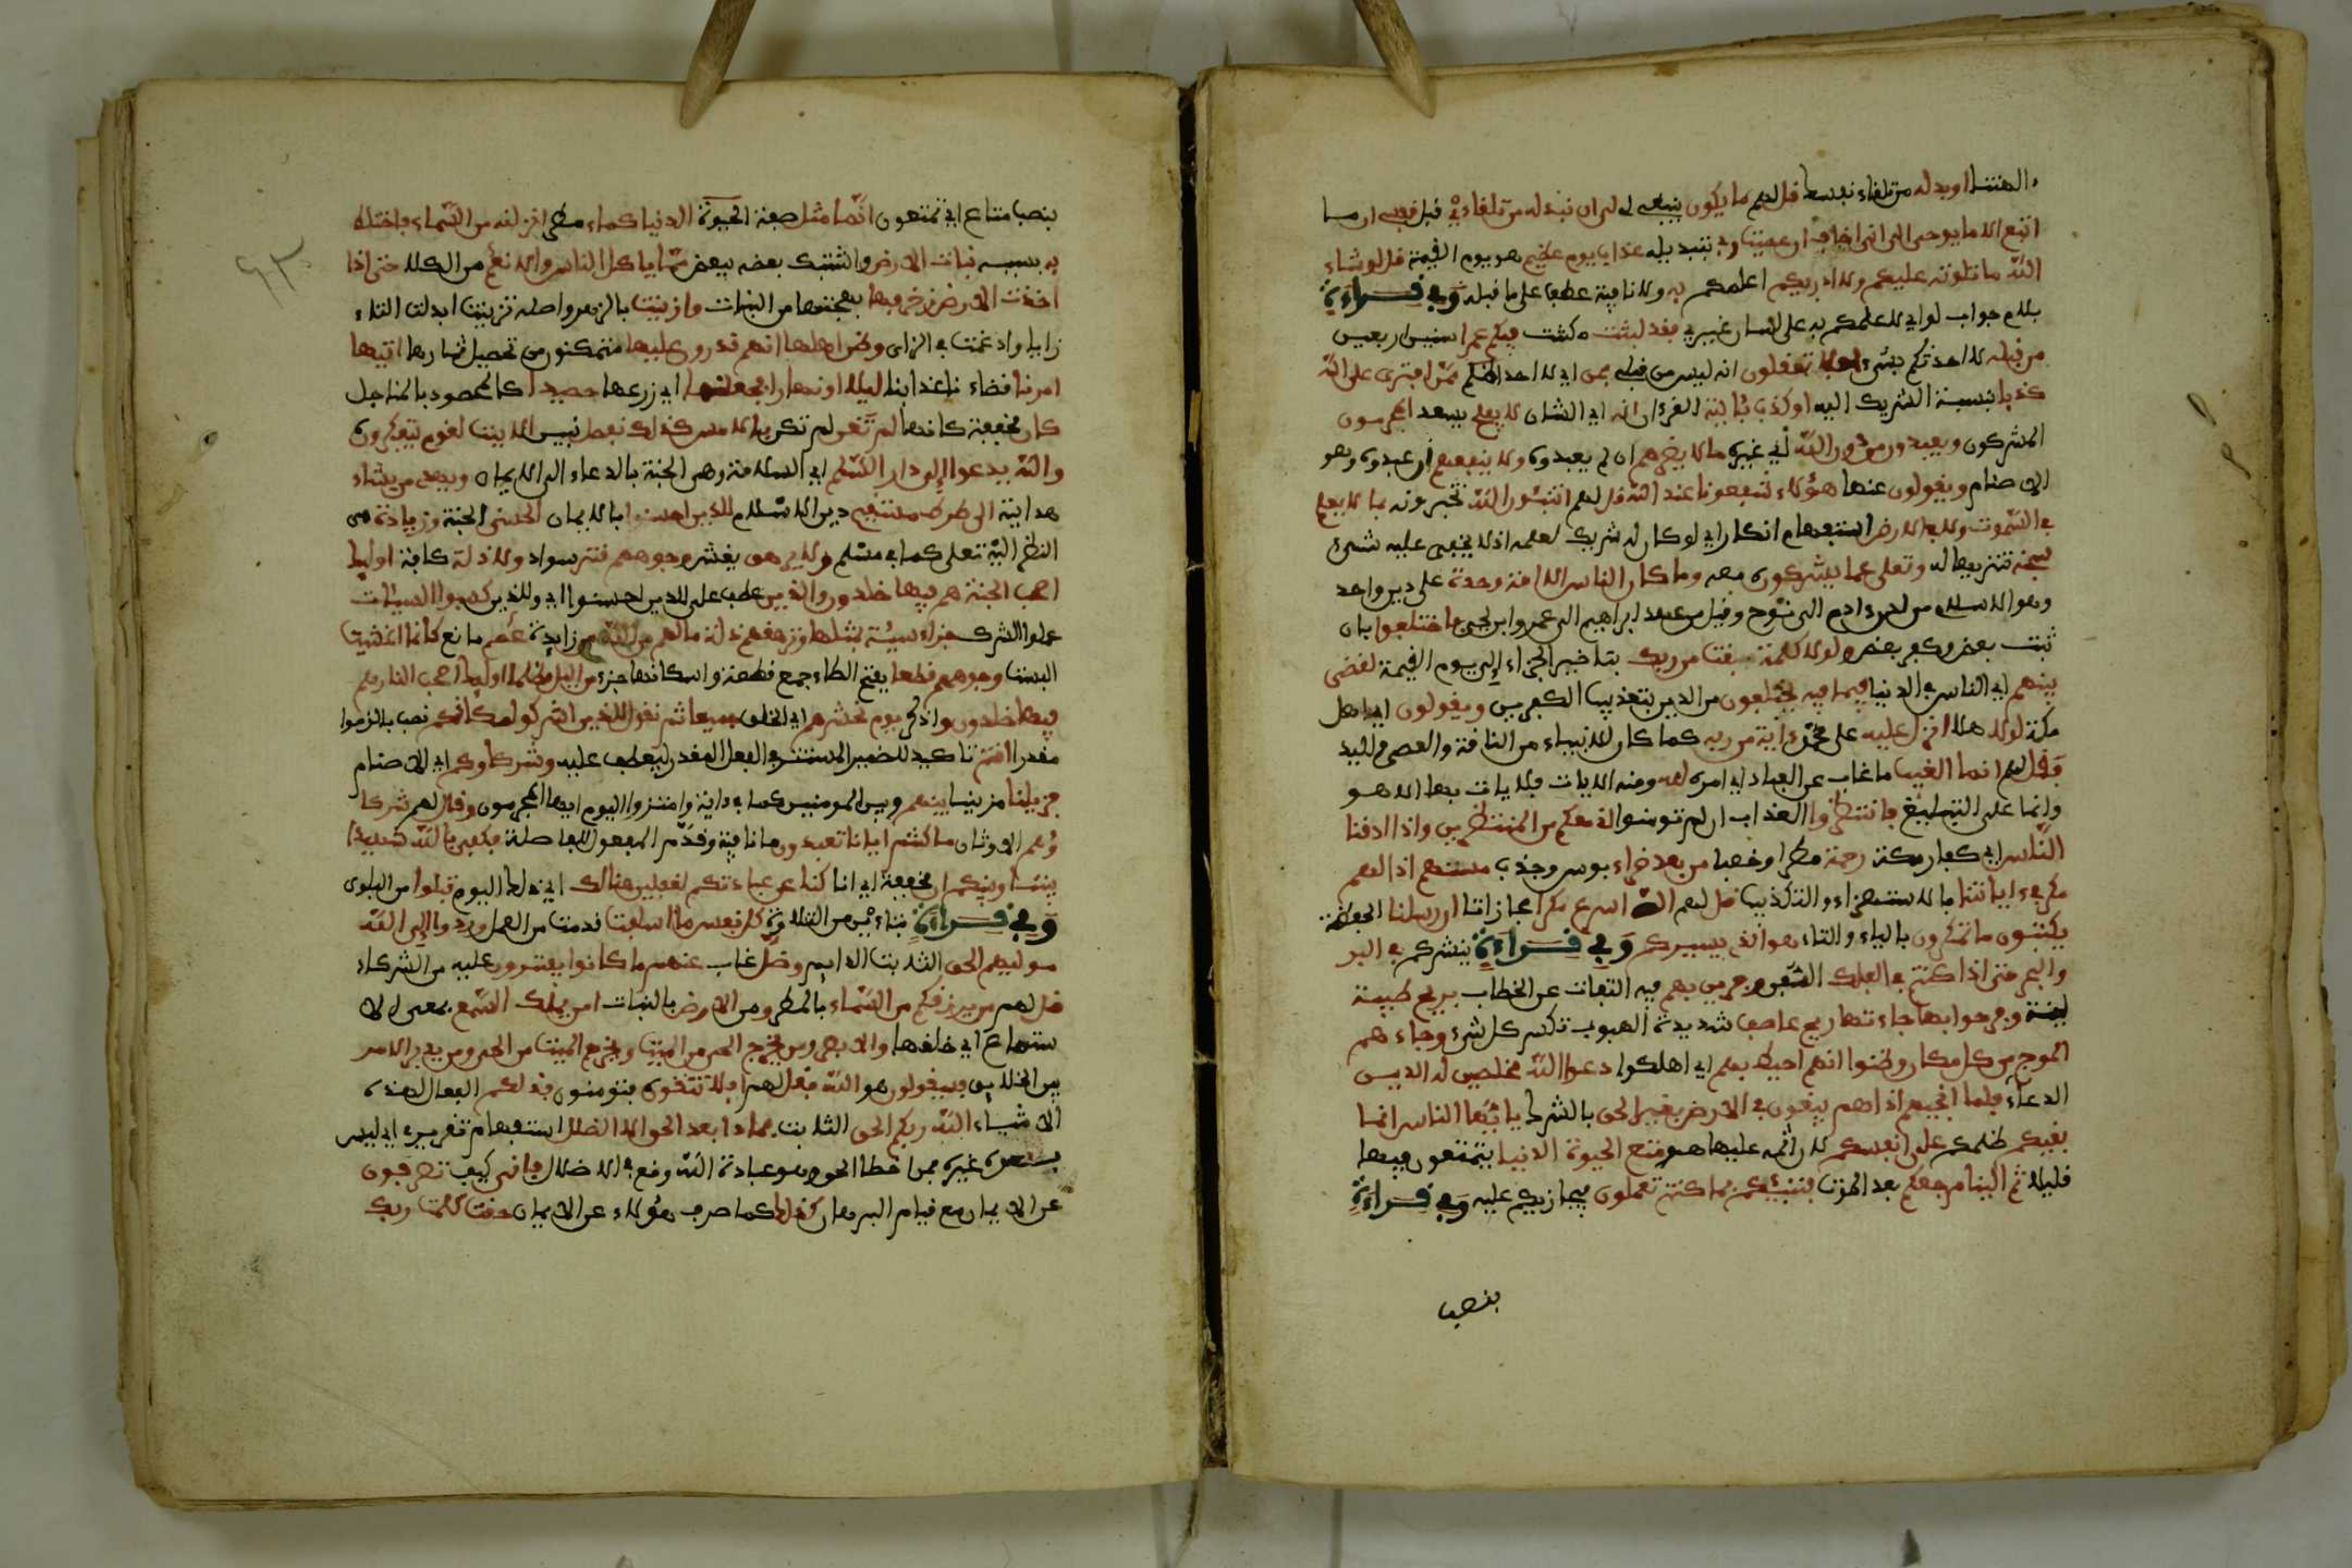 ءالهتنا او بدله من تلقاء نفسك قل لهم ما يكون ينبغي لي ان ابدله من تلقاءي قبل نفسي ان ما
اتبع الا ما يوحى الي اني اخاف ان عصيت ربي بتبديله عذاب يوم عظيم هو يوم القيمة قل لو شاء
الله ما تلوته عليكم ولا ادريكم اعلمكم به ولا نافية عطف على ما قبله وفي قراءة
بلام جواب لو اي لاعلمكم به على لسان غيري فقد لبثت مكثت فيكم عمرا سنينا اربعين
من قبله لا احدثكم بشيء افلا تعقلون انه ليس من قبلي فمن اي لا احد اظلم ممن افترى على الله
كذبا بنسبة الشريك اليه او كذب بئايته القرءان انه اي الشان لا يفلح يسعد المجرمون
المشركون ويعبدون من دون الله اي غيره ما لا يضرهم ان لم يعبدوه ولا ينفعهم ان عبدوه وهو
الاصنام ويقولون عنها هؤلاء شفعونا عند الله قل لهم اتنبئون الله تخبرونه بما لا يعلم
في السموت ولا في الارض استفهام انكار اي لو كان له شريك لعلمه اذ لا يخفى عليه شيء
سبحنه تنزيها له وتعلى عما يشركون معه وما كان الناس الا امة وحدة على دين واحد
وهو الاسلام من لدن ءادم الى نوح وقيل من عهد ابراهيم الى عمرو ابن لحي فاختلفوا بان
ثبت بعض وكفر بعض ولولا كلمة سبقت من ربك بتاخير الجزاء الى يوم القيمة لقضي
بينهم اي الناس في الدنيا فيما فيه يختلفون من الدين بتعذيب الكفرين ويقولون اي اهل
مكة لولا هلا انزل عليه على محمد ءاية من ربه كما كان للانبياء من الناقة والعصى واليد
فقل لهم انما الغيب ما غاب عن العباد اي امره لله ومنه الايات فلا يات بها الا هو
وانما علي التبليغ فانتظروا العذاب ان لم تومنوا اني معكم من المنتظرين واذا اذقنا
الناس اي كفار مكة رحمة مطرا وخصبا من بعد ضراء بوس وجذب مستهم اذا لهم
مكر في ءاياتنا بالاستهزاء والتكذيب قل لهم الله اسرع مكرا مجازاتا ان رسلنا الحفظة
يكتبون ما تمكرون بالياء والتاء هو الذي يسيركم وفي قراءة ينشركم في البر
والبحر حتى اذا كنتم في الفلك السفن وجرين بهم فيه التفات عن الخطاب بريح طيبة
لينة وفرحوا بها جاءتها ريح عاصف شديدة الهبوب تكسر كل شيء وجاءهم
الموج من كل مكان وظنوا انهم احيط بهم اي اهلكوا دعوا الله مخلصين له الدين
الدعاء فلما انجيهم اذا هم يبغون في الارض بغير الحق بالشرك يايها الناس انما
بغيكم ظلمكم على انفسكم لان اثمه عليها هو متع الحيوة الدنيا يتمتعون فيها
قليلا ثم الينا مرجعكم بعد الموت فننبئكم بما كنتم تعملون فيجازيكم عليه وفي قراءة
بنصب
٦٣
بنصب متاع اي تتمتعون انما مثل صفة الحيوة الدنيا كماء مطر انزلنه من السماء فاختلط
به بسببه نبات الارض واشتبك بعضه ببعض مما ياكل الناس والانعم من الكلا حتى اذا
اخذت الارض زخرفها بهجتها من النبات وازينت بالزهر واصله تزينت ابدلت التاء
زايا وادغمت في الزاي وظن اهلها انهم قدرون عليها متمكنون من تحصيل ثمارها اتيها
امرنا قضاءنا عذابنا ليلا او نهارا فجعلنها اي زرعها حصيدا كالمحصود بالمناجل
كان مخففة كانها لم تغن لم تكن بالامس كذلك نفصل نبين الايت لقوم يتفكرون
والله يدعوا الى دار السلم اي السلامة وهي الجنة بالدعاء الى الايمان ويهدي من يشاء
هدايته الى صرط مستقيم دين الاسلام للذين احسنوا بالايمان الحسنى الجنة وزيادة هي
النظر اليه تعلى كما في مسلم ولا يرهق يغشى وجوههم قتر سواد ولا ذلة كابة اوليك
اصحب الجنة هم فيها خلدون والذين عطف على للذين احسنوا اي وللذين كسبوا السيئات
عملوا الشرك جزاء سيئة بمثلها وترهقهم ذلة ما لهم من الله من زايدة عصم مانع كانما اغشيت
البست وجوههم قطعا بفتح الطاء جمع قطعة واسكانها جزء من اليل مظلما اوليك اصحب النار هم
فيها خلدون واذكر يوم نحشرهم اي الخلق جميعا ثم نقول للذين اشركوا مكانكم نصب بالزموا
مقدرا انتم تاكيد للضمير المستتر في الفعل المقدر ليعطف عليه وشركاوكم اي الاصنام
فزيلنا ميزنا بينهم وبين المومنين كما في ءاية وامتزوا اليوم ايها المجرمون وقال لهم شركا
وهم الاوثان ما كنتم ايانا تعبدون ما نافية وقدم المفعول للفاصلة فكفى بالله شهيدا
بيننا وبينكم ان مخففة اي انا كنا عن عبادتكم لغفلين هنالك اي ذلك اليوم تبلوا من البلوى
وفي قراءة بتاءين من التلاوة كل نفس ما اسلفت قدمت من العمل وردوا الى الله
موليهم الحق الثابت الدايم وضل غاب عنهم ما كانوا يفترون عليه من الشركاء
قل لهم من يرزقكم من السماء بالمطر ومن الارض بالنبات امن يملك السمع بمعنى الا
سماع اي خلقها والابصر ومن يخرج الحي من الميت ويخرج الميت من الحي ومن يدبر الامر
بين الخلايق فسيقولون هو الله فقل لهم افلا تتقون فتومنون فذلكم الفعال لهذه
الاشياء الله ربكم الحق الثابت فماذا بعد الحق الا الضلل استفهام تقرير اي ليس
بعده غيره فمن اخطا الحق وهو عبادة الله وقع في الاضلال فاني كيف تصرفون
عن الايمان مع قيام البرهان كذلك كما صرف هؤلاء عن الايمان حقت كلمت ربك